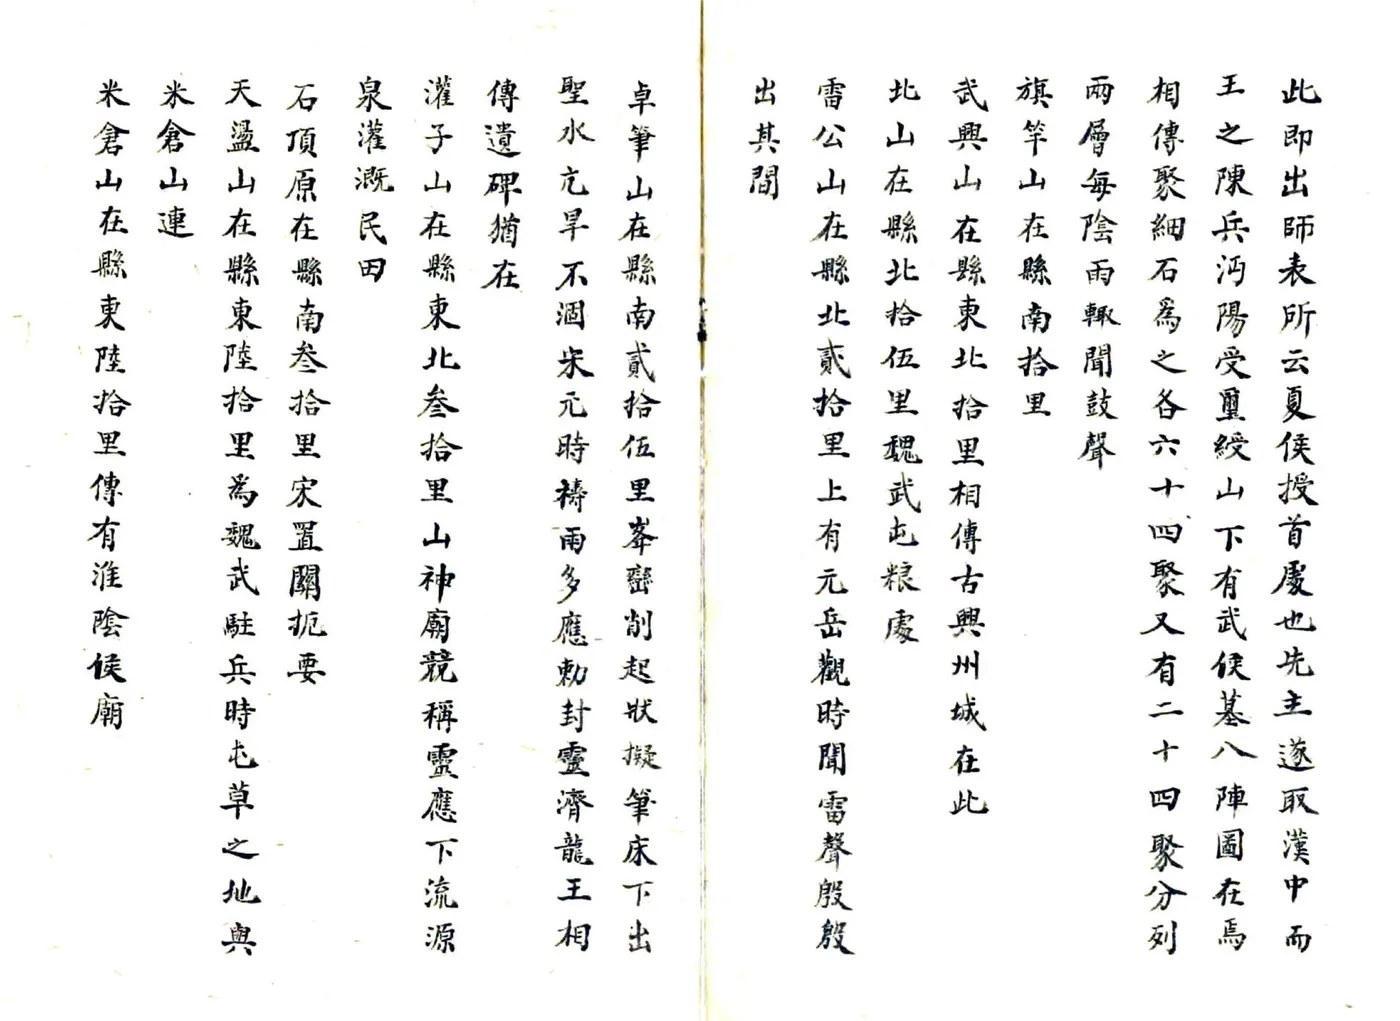 此即出師表所云夏侯授首處也先主遂取漢中而
王之陳兵沔陽受璽綬山下有武侯墓八陣圖在焉
相傳聚細石為之各六十四聚又有二十四聚分列
兩層每陰雨輙聞鼓聲
旗竿山在縣南拾里
武興山在縣東北拾里相傳古興州城在此
北山在縣北拾伍里魏武屯粮處
雷公山在縣北貳拾里上有元岳觀時聞雷聲殷殷
出其間
卓筆山在縣南貳拾伍里峯巒削起狀擬筆床下出
聖水亢旱不涸宋元時禱雨多應勅封靈濟龍王相
傳遺碑猶在
灌子山在縣東北叁拾里山神廟競稱靈應下流源
泉灌溉民田
石頂原在縣南叁拾里宋置關扼要
天盪山在縣東陸拾里為魏武駐兵時屯草之地與
米倉山連
米倉山在縣東陸拾里傳有淮陰侯廟